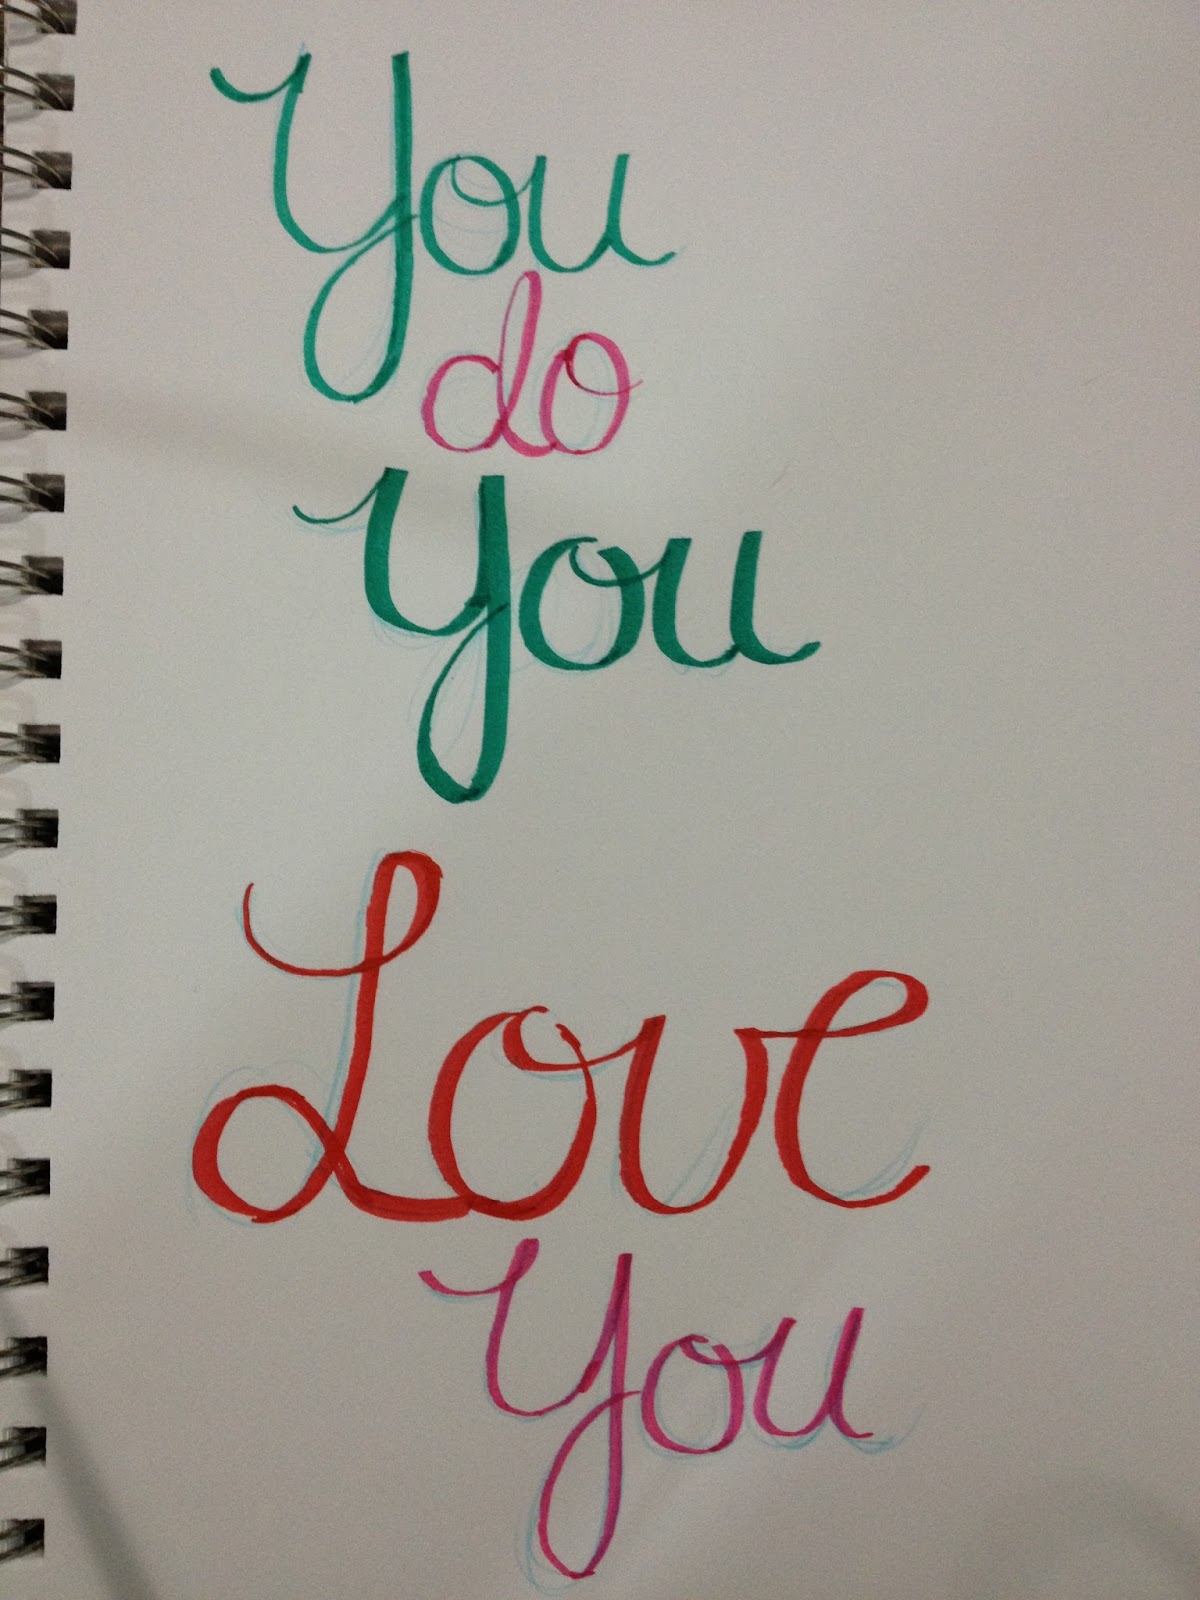 You
do
You
Love
You